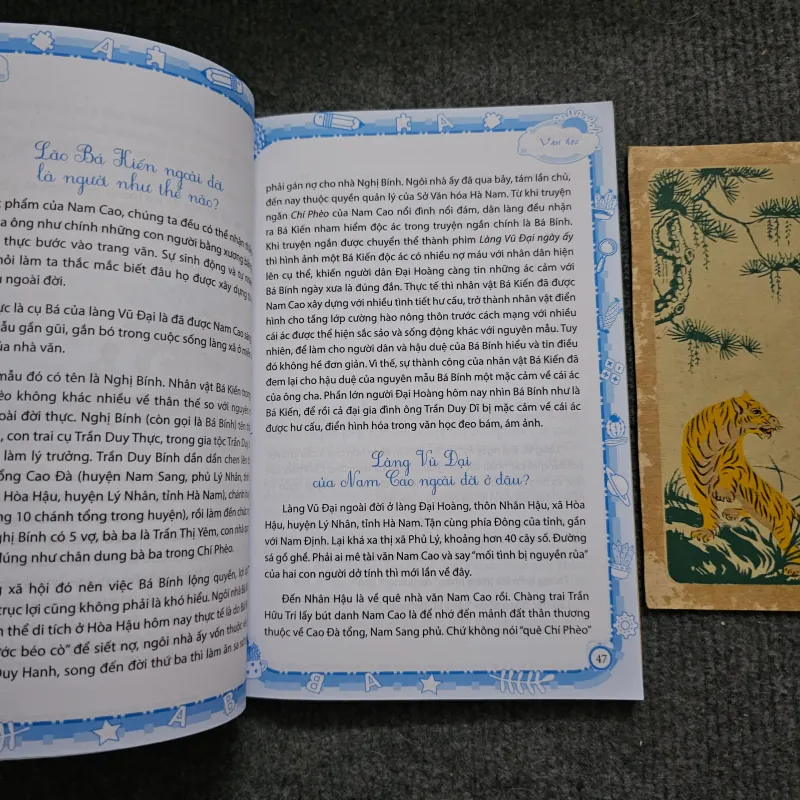 Lão Bá Kiến ngoài đời
là người như thế nào?
phẩm của Nam Cao, chúng ta đều có thể nhận
ông như chính những con người bằng xương bằng
thực bước vào trang văn. Sự sinh động và tự
hỏi làm ta thắc mắc biết đâu họ được xây dựng
ngoài đời.
là cụ Bá của làng Vũ Đại là đã được Nam Cao
gần gũi, gắn bó trong cuộc sống làng xã ở
của nhà văn.
mẫu đó có tên là Nghị Bính. Nhân vật Bá Kiến trong
không khác nhiều về thân thế so với nguyên
đời thực. Nghị Bính (còn gọi là Bá Bính) tên
, con trai cụ Trần Duy Thực, trong gia tộc Trần Duy
làm lý trưởng. Trần Duy Bính dần dần chen lên
tổng Cao Đà (huyện Nam Sang, phủ Lý Nhân,
Hòa Hậu, huyện Lý Nhân, tỉnh Hà Nam), chánh
10 chánh tổng trong huyện), rồi làm đến
Bính có 5 vợ, bà ba là Trần Thị Yêm, con nhà
đúng như chân dung bà ba trong Chí Phèo.
xã hội đó nên việc Bá Bính lộng quyền, lợi
trục lợi cũng không phải là khó hiểu. Ngôi nhà
thể di tích ở Hòa Hậu hôm nay thực tế là do Bá
béo cò" để siết nợ, ngôi nhà ấy vốn thuộc
Duy Hanh, song đến đời thứ ba thì làm ăn sa
Văn học
phải gán nợ cho nhà Nghị Bính. Ngôi nhà ấy đã qua bảy, tám lần chủ,
đến nay thuộc quyền quản lý của Sở Văn hóa Hà Nam. Từ khi truyện
ngắn Chí Phèo của Nam Cao nổi đình nổi đám, dân làng đều nhận
ra Bá Kiến nham hiểm độc ác trong truyện ngắn chính là Bá Bính.
Khi truyện ngắn được chuyển thể thành phim Làng Vũ Đại ngày ấy
thì hình ảnh một Bá Kiến độc ác có nhiều nợ máu với nhân dân hiện
lên cụ thể, khiến người dân Đại Hoàng càng tin những ác cảm với
Bá Bính ngày xưa là đúng đắn. Thực tế thì nhân vật Bá Kiến đã được
Nam Cao xây dựng với nhiều tình tiết hư cấu, trở thành nhân vật điển
hình cho tầng lớp cường hào nông thôn trước cách mạng với nhiều
cái ác được thể hiện sắc sảo và sống động khác với nguyên mẫu. Tuy
nhiên, để làm cho người dân và hậu duệ của Bá Bính hiểu và tin điều
đó không hề đơn giản. Vì thế, sự thành công của nhân vật Bá Kiến đã
đem lại cho hậu duệ của nguyên mẫu Bá Bính một mặc cảm về cái ác
của ông cha. Phần lớn người Đại Hoàng hôm nay nhìn Bá Bính như là
Bá Kiến, để rồi cả đại gia đình ông Trần Duy Dĩ bị mặc cảm về cái ác
được hư cấu, điển hình hóa trong văn học đeo bám, ám ảnh.
Làng Vũ Đại
của Nam Cao ngoài đời ở đâu?
Làng Vũ Đại ngoài đời ở làng Đại Hoàng, thôn Nhân Hậu, xã Hòa
Hậu, huyện Lý Nhân, tỉnh Hà Nam. Tận cùng phía Đông của tỉnh, gần
với Nam Định. Lại khá xa thị xã Phủ Lý, khoảng hơn 40 cây số. Đường
sá gồ ghề. Phải ai mê tài văn Nam Cao và say "mối tình bị nguyền rủa"
của hai con người dở tính thì mới lần về đây.
Đến Nhân Hậu là về quê nhà văn Nam Cao rồi. Chàng trai Trần
Hữu Tri lấy bút danh Nam Cao là để nhớ đến mảnh đất thân thương
thuộc về Cao Đà tổng, Nam Sang phủ. Chứ không nói "quê Chí Phèo"
47